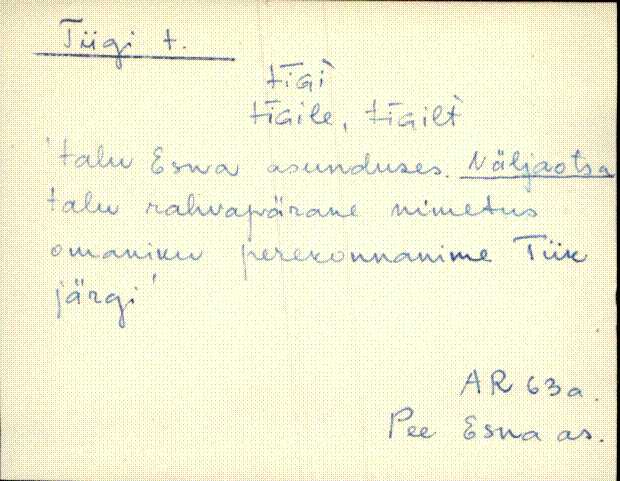 Tiigi t.
tīgì
tīgile, tīgilt̀
'talu Esna asunduses. Näljaotsa
talu rahvapärane nimetus
omaniku perekonnanime Tiik
järgi'
AR 63a.
Pee Esna as.